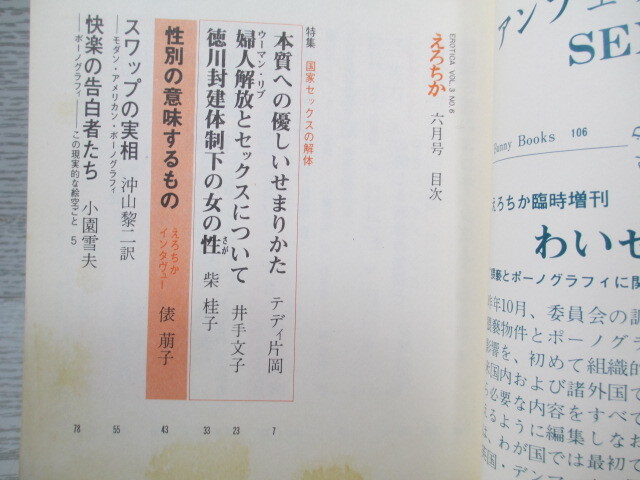 EROTICA VOL.3 NO.6
えろちか 六月号 目次
特集 国家セックスの解体
本質への優しいせまりかた テディ片岡 7
ウーマン・リブ
婦人解放とセックスについて 井手文子 23
徳川封建体制下の女の性 柴桂子 33
さが
性別の意味するもの えろちかインタヴュー 俵萠子 43
スワップの実相 沖山黎二訳 55
──モダン・アメリカン・ポーノグラフィ
快楽の告白者たち 小園雪夫 78
──ポーノグラフィ──この現実的な絵空ごと 5
アンソ
SE
Fanny Books 106
えろちか臨時増刊
わいせ
猥褻とポーノグラフィに関
年10月、委員会の調
猥褻物件とポーノグラ
影響を、初めて組織的
米国内および諸外国で
必要な内容をすべて
えるように編集しなお
は、わが国では最初で
国・デンマ